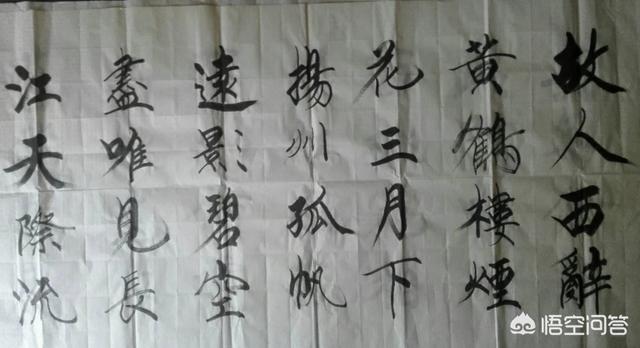 故人西辭
黃鶴樓煙
花三月下
揚州孤帆
遠影碧空
盡唯見長
江天際流
悟空问答